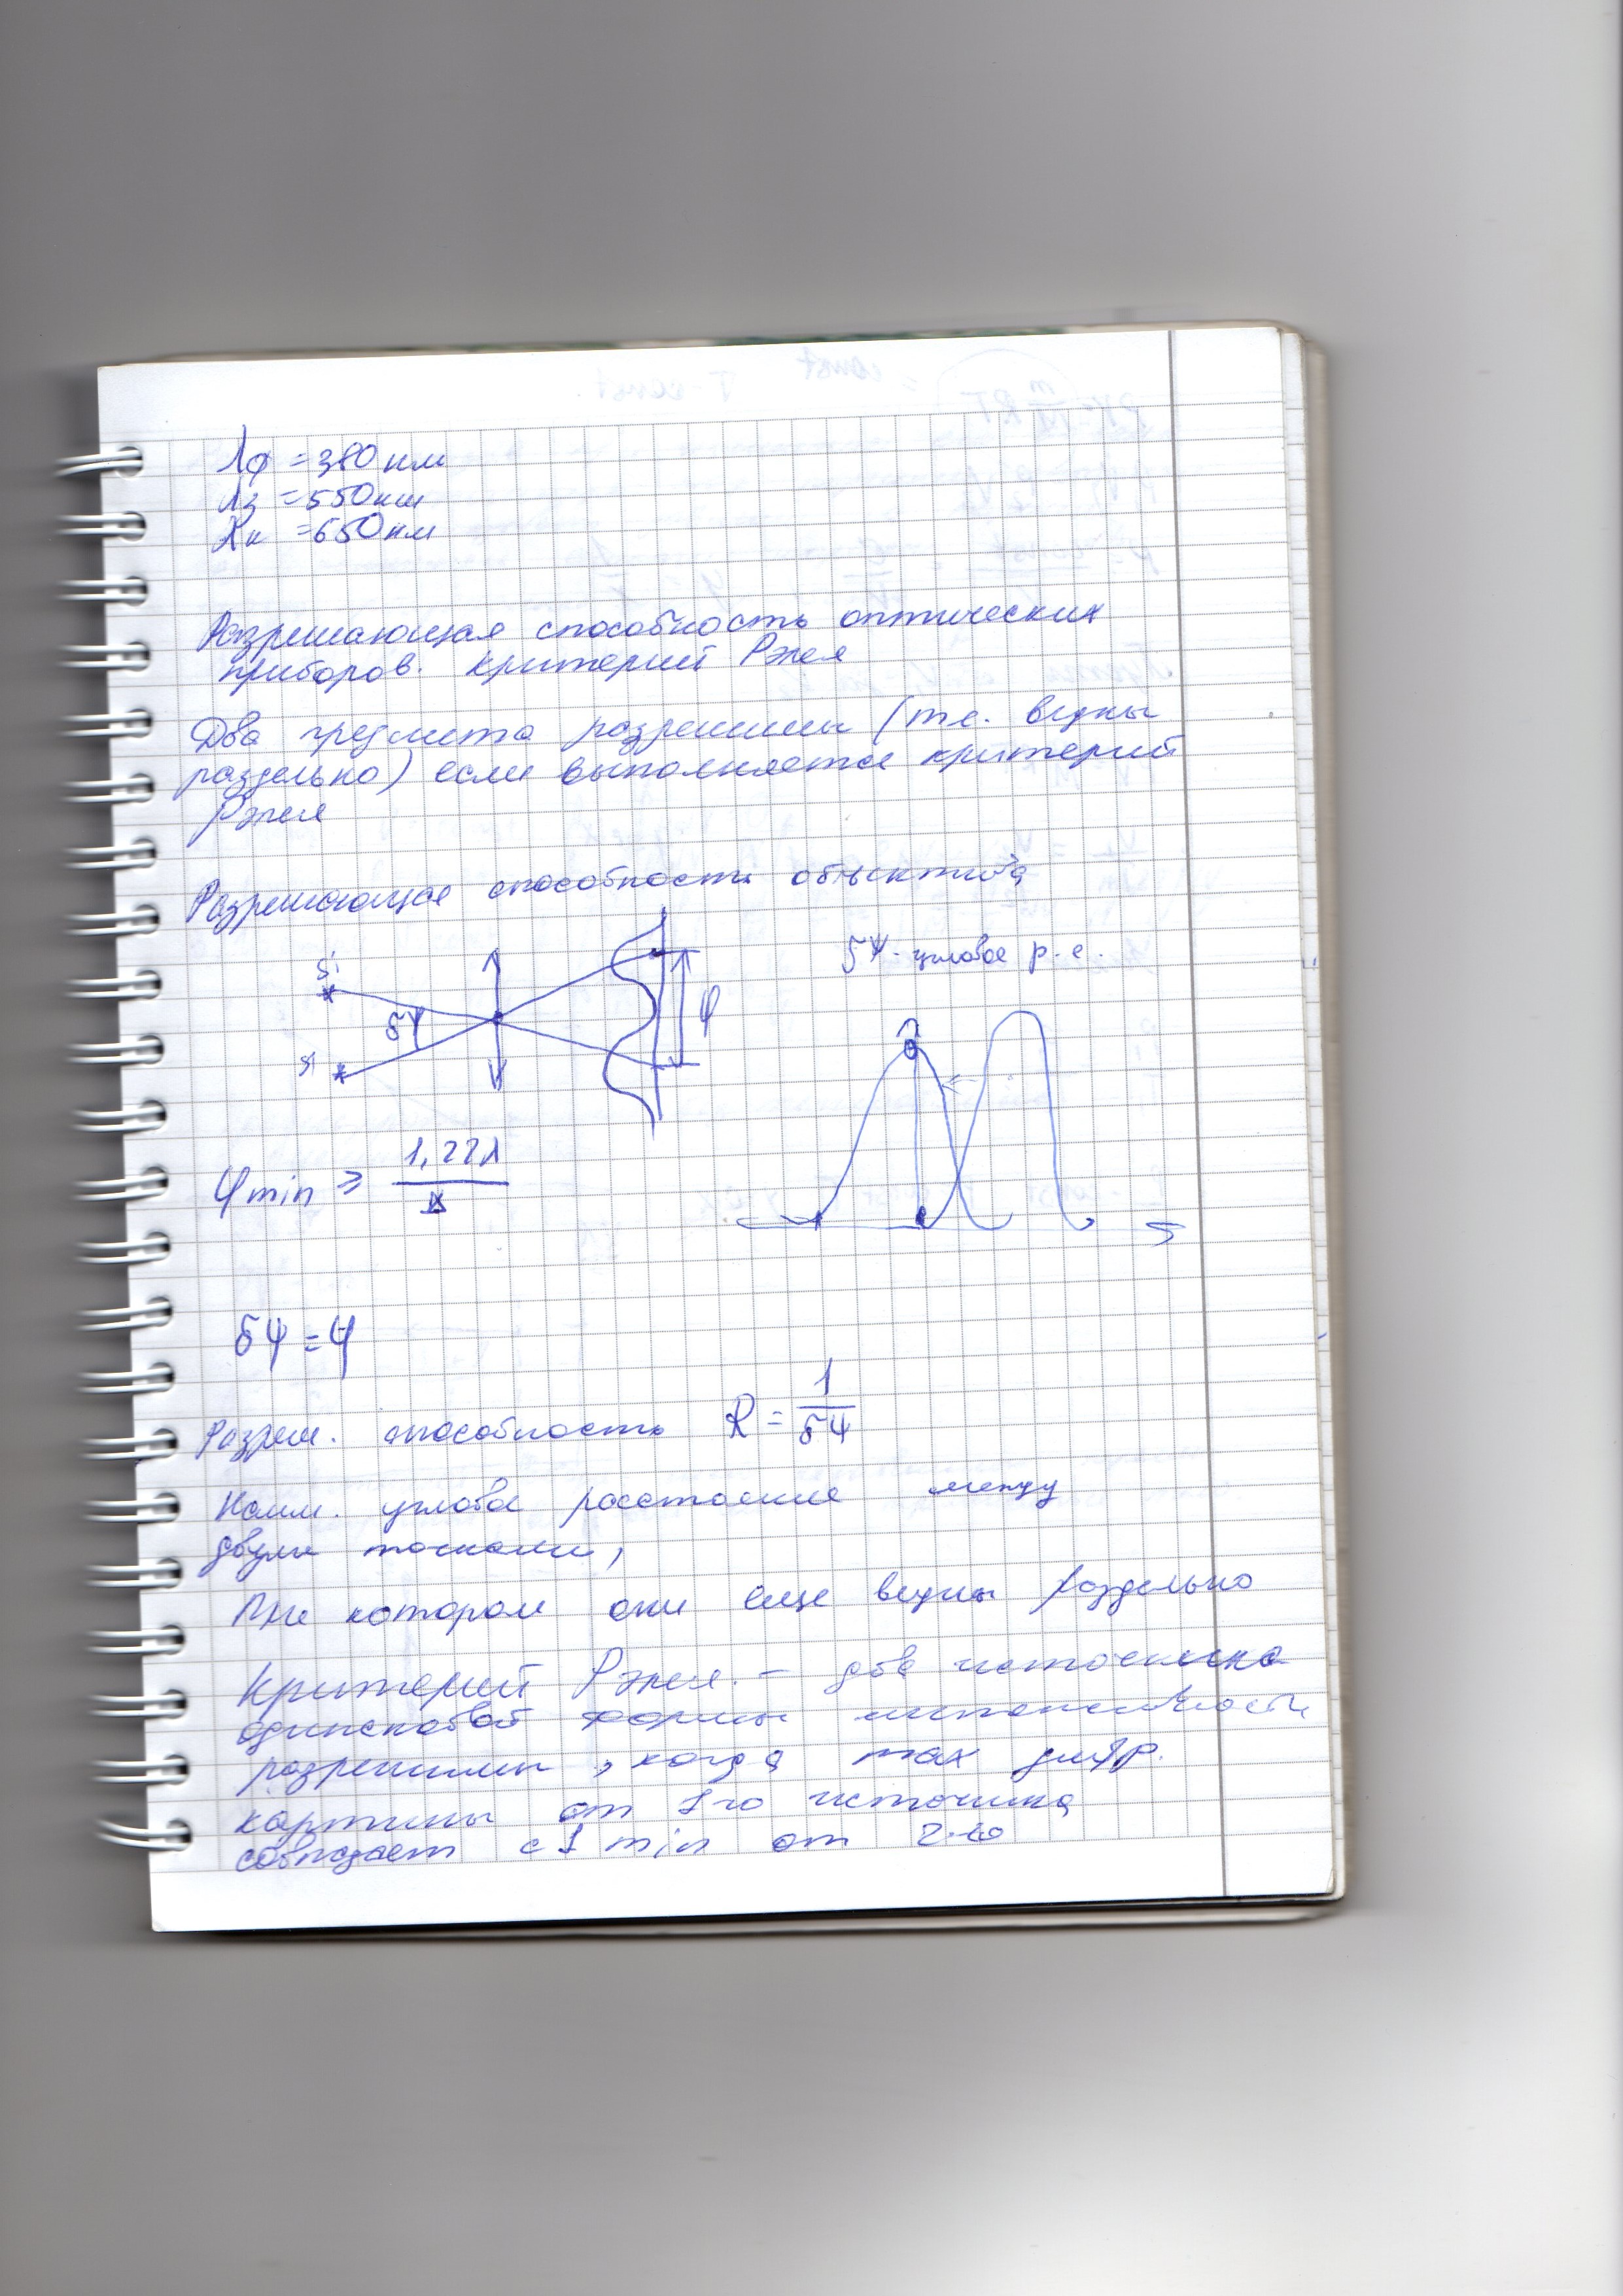 λф = 380 нм
λз = 550 нм
λк = 650 нм
Разрешающая способность оптических
приборов. Критерий Рэлея
Два предмета разрешимы (т.е. видны
раздельно) если выполняется критерий
Рэлея
Разрешающая способность объектива
δψ - угловое р-е.
S'
δψ
S'
φ
φmin ≥ 1,22λ / D
δψ = φ
Разреш. способность R = 1 / δψ
Наим. угловое расстояние между
двумя точками,
При котором они еще видны раздельно
Критерий Рэлея. – два источника
одинаковой формы интенсивности
разрешимы, когда max дифр.
картины от 1го источника
совпадает с 1 min от 2-го